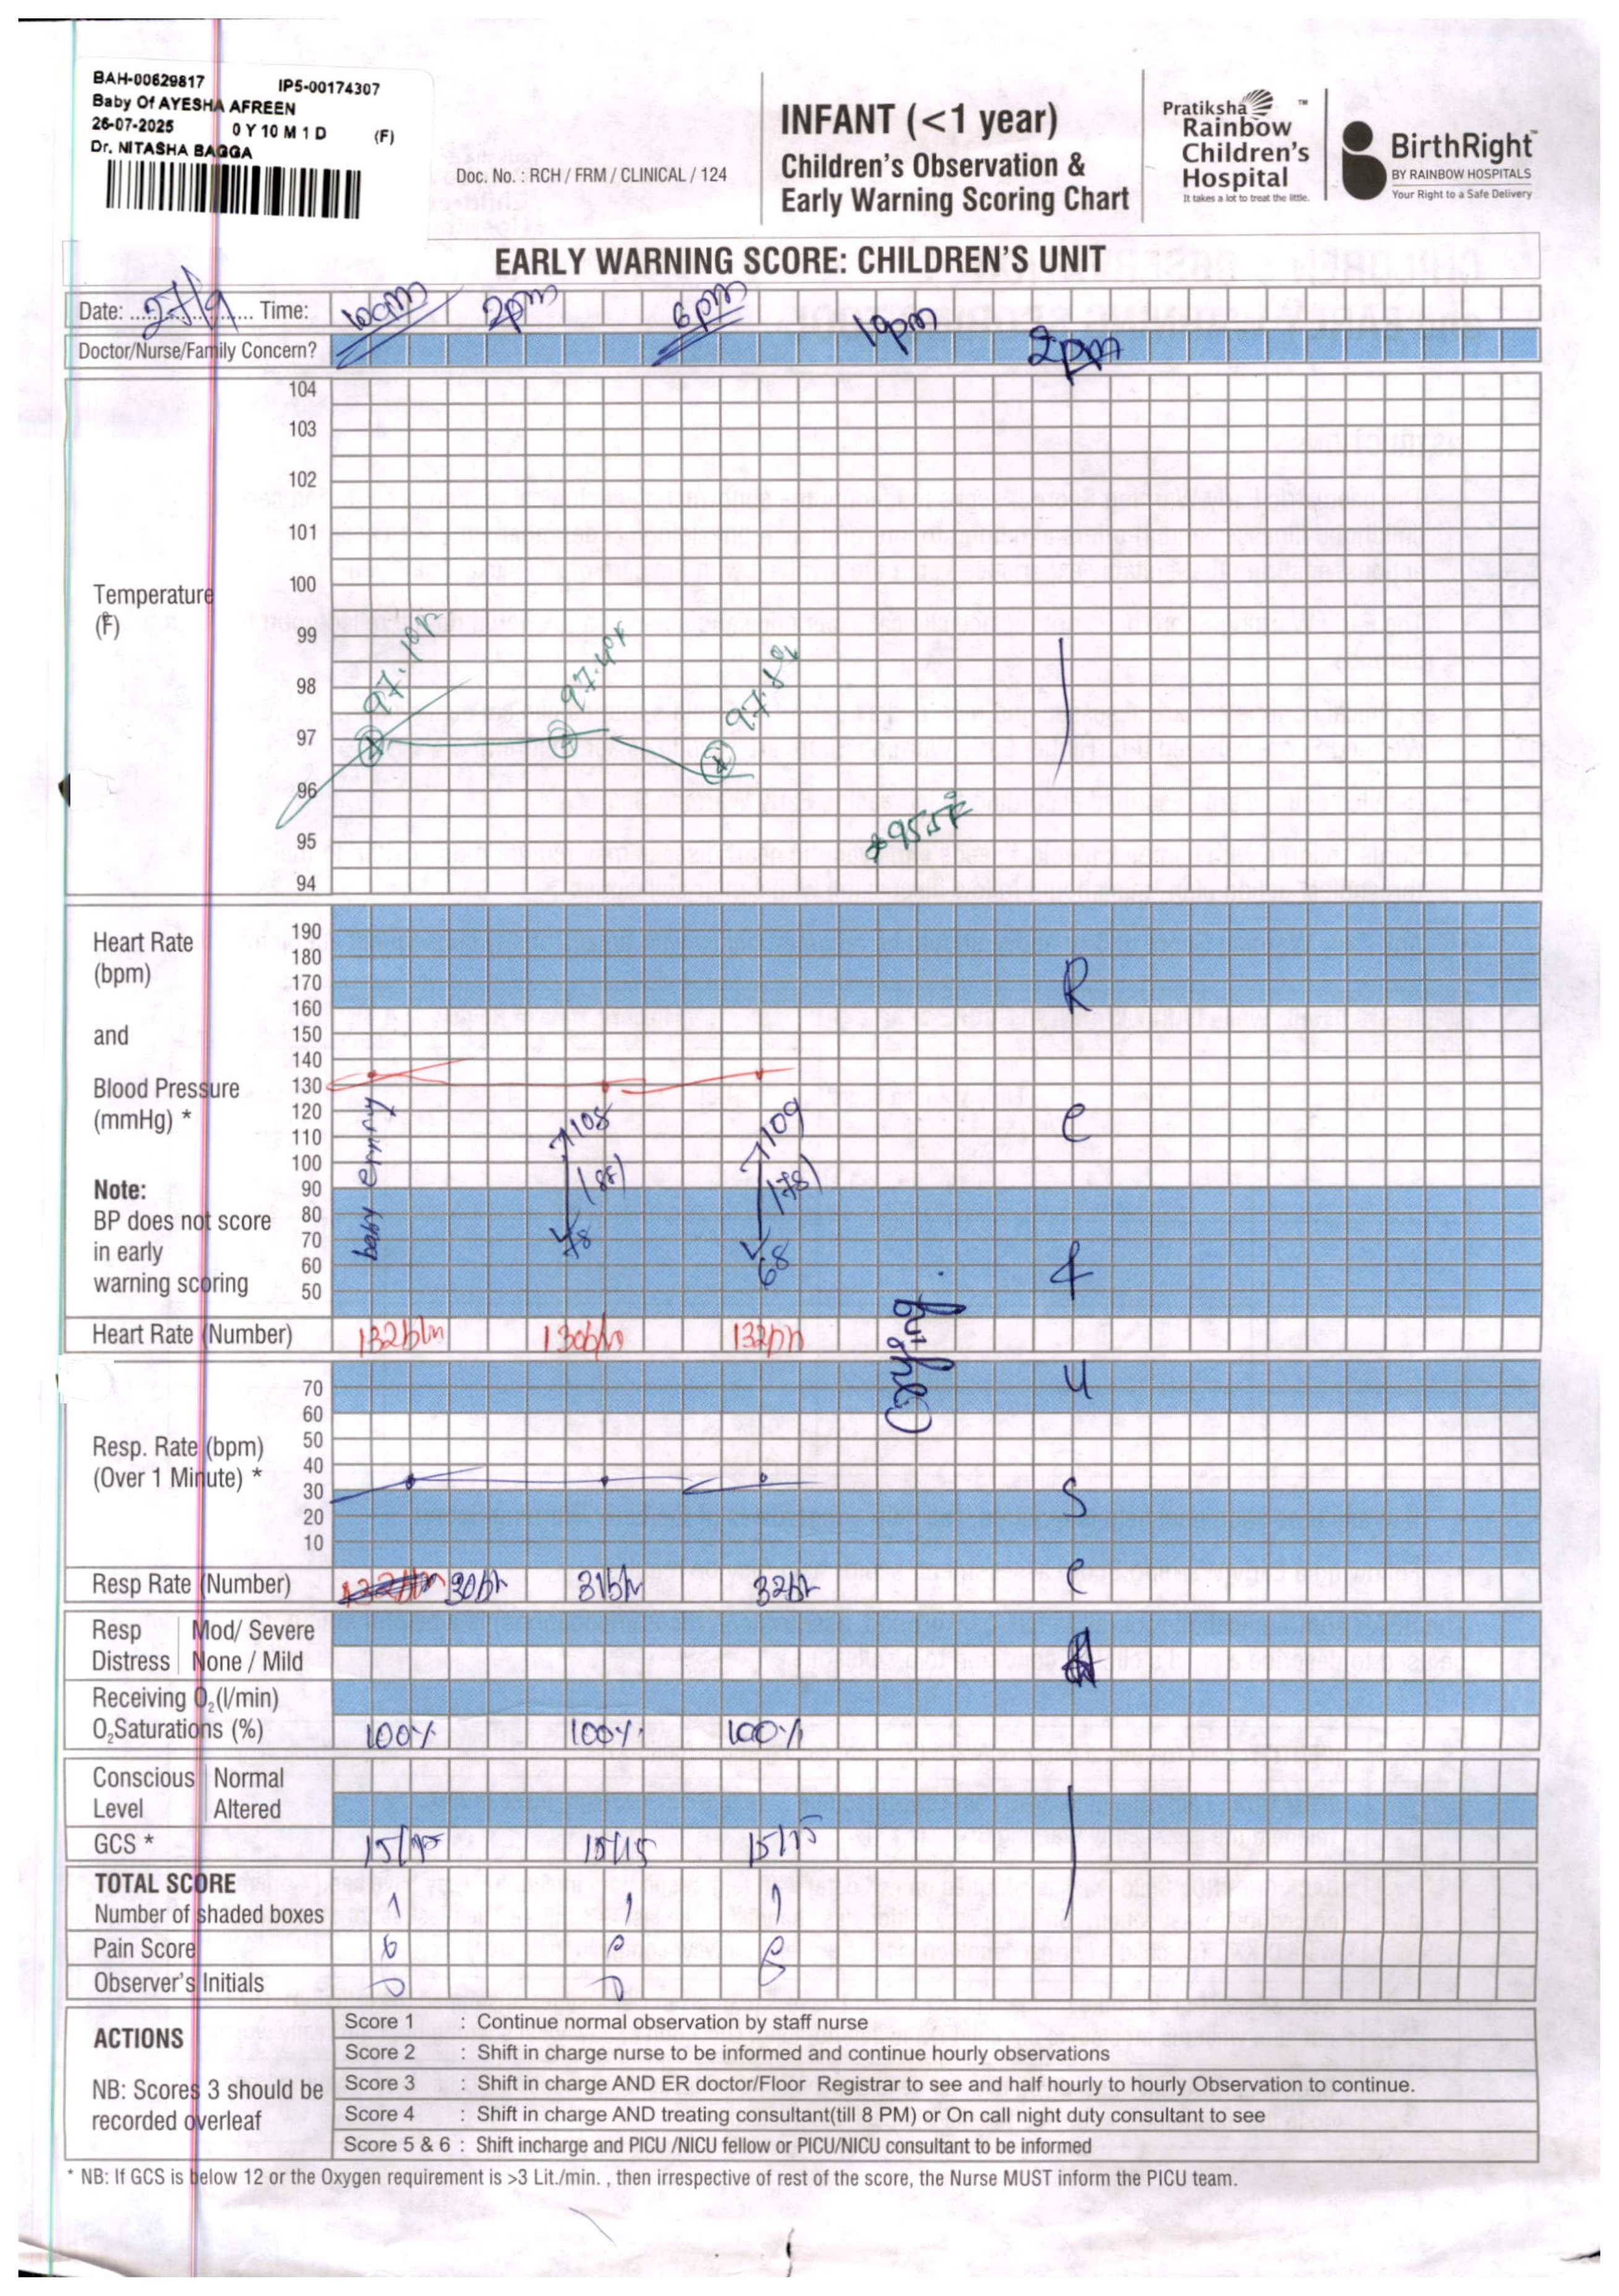 BAH-00629817 IP5-00174307
Baby Of AYESHA AFREEN
26-07-2025 0 Y 10 M 1 D (F)
Dr. NITASHA BAGGA
Doc. No. : RCH / FRM / CLINICAL / 124
INFANT (<1 year)
Children's Observation &
Early Warning Scoring Chart
Pratiksha TM
Rainbow
Children's
Hospital
It takes a lot to treat the little.
BirthRight TM
BY RAINBOW HOSPITALS
Your Right to a Safe Delivery
EARLY WARNING SCORE: CHILDREN'S UNIT
Date: 27/9 Time: 10am 2pm 6pm 10pm
Doctor/Nurse/Family Concern? 2pm
104
103
102
101
100
Temperature
(F)
99
98
97
96
95
94
97.1°F 97.4°F
95.5°F
Heart Rate
(bpm)
and
Blood Pressure
(mmHg) *
Note:
BP does not score
in early
warning scoring
190
180
170
160
150
140
130
120
110
100
90
80
70
60
50
108 109
(88) (78)
78 68
Heart Rate (Number) 132b/m 130b/m
R
e
f
u
s
e
Resp. Rate (bpm)
(Over 1 Minute) *
70
60
50
40
30
20
10
Resp Rate (Number) 30b/m 31b/m 32b/m
Resp Distress Mod/ Severe
None / Mild
Receiving O₂(l/min)
O₂Saturations (%) 100% 100% 100%
Conscious Level Normal
Altered
GCS * 15/15 15/15 15/15
TOTAL SCORE
Number of shaded boxes 1 1 1
Pain Score
Observer's Initials
ACTIONS
NB: Scores 3 should be
recorded overleaf
Score 1 : Continue normal observation by staff nurse
Score 2 : Shift in charge nurse to be informed and continue hourly observations
Score 3 : Shift in charge AND ER doctor/Floor Registrar to see and half hourly to hourly Observation to continue.
Score 4 : Shift in charge AND treating consultant(till 8 PM) or On call night duty consultant to see
Score 5 & 6 : Shift incharge and PICU /NICU fellow or PICU/NICU consultant to be informed
* NB: If GCS is below 12 or the Oxygen requirement is >3 Lit./min. , then irrespective of rest of the score, the Nurse MUST inform the PICU team.